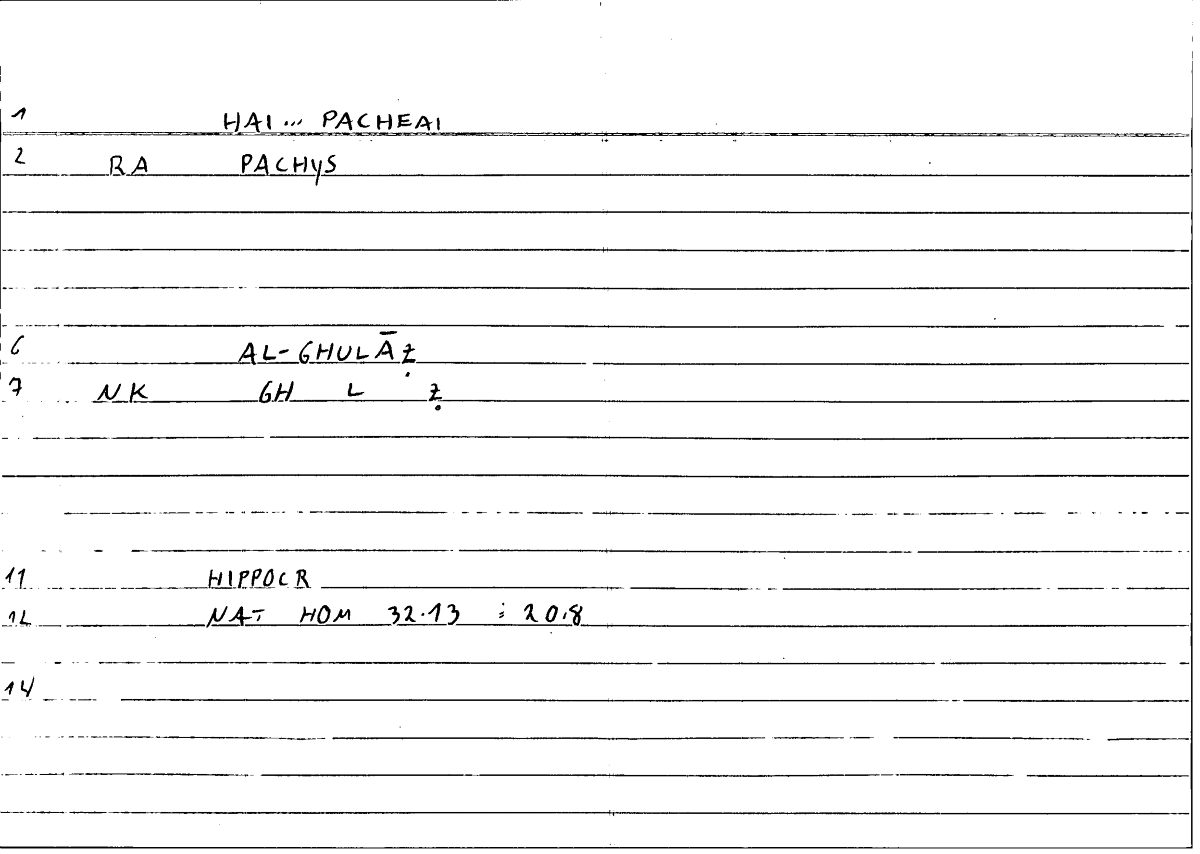 1 HAI ... PACHEAI
2 RA PACHYS
6 AL-GHULĀẒ
7 NK GH L Ẓ
11 HIPPOCR
12 NAT HOM 32.13 : 20.8
14